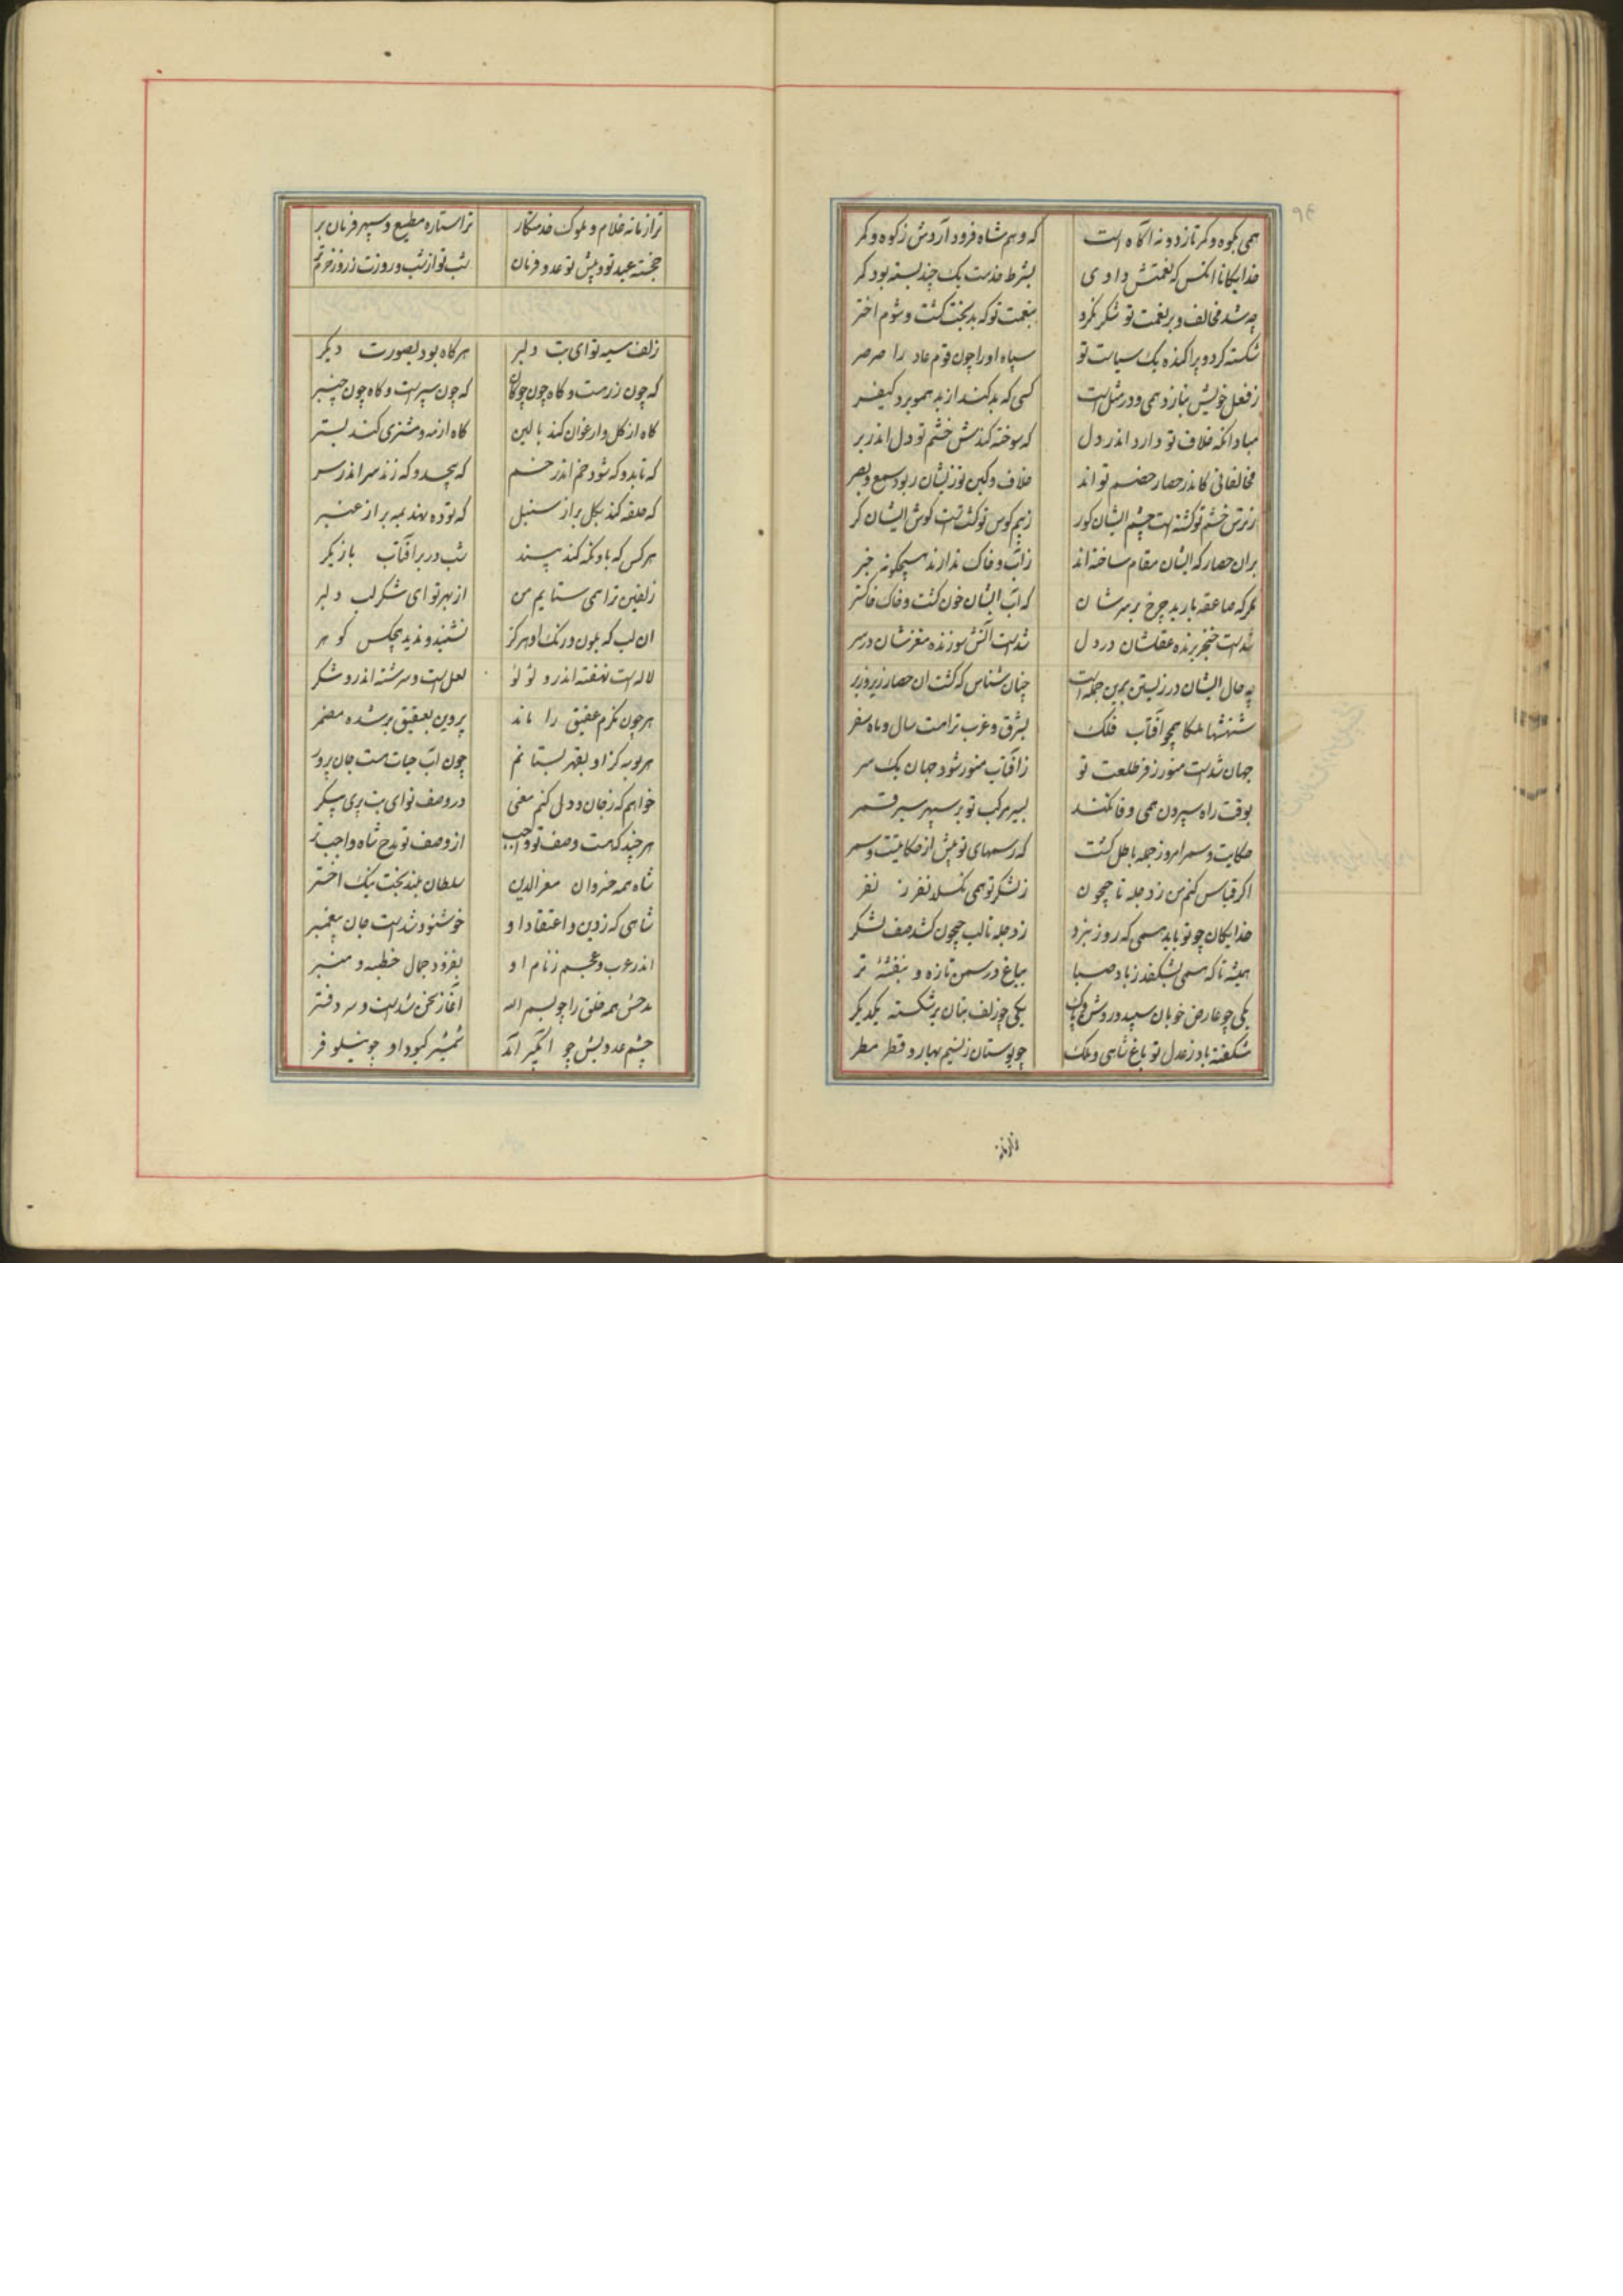 ۹۴
همی بکوه و کمر تازد و نه آگاه است که وهم شاه فرود آردش ز کوه و کمر
خدایگانا انکس که نعمتش دادی بشرط خدمت یک چند بسته بود کمر
چه شد مخالف و بر نعمت تو شکر نکرد بنعمت تو که بدبخت گشت و شوم اختر
شکسته کرد و پراکنده یک سیاست تو سپاه او را چون قوم عاد را صرصر
ز فعل خویش بنازد همی و در مثل است کسی که بد کند از بد همو برد کیفر
مباد انکه خلاف تو دارد اندر دل که سوخته کندش خشم تو دل اندر بر
مخالفانی کاندر حصار خصم تو اند خلاف و کین تو زیشان ربود سمع و بصر
ز ترس خشم تو گشته است چشم ایشان کور ز بیم کوس تو گشت است گوش ایشان کر
بران حصار که ایشان مقام ساخته اند ز آب و خاک ندارند هیچگونه خبر
مگر که صاعقه بارید چرخ بر سرشان که آب ایشان خون گشت و خاک خاکستر
شدست خنجر برنده عقلشان در دل شدست آتش سوزنده مغزشان در سر
چه حال ایشان در زیستن برین جمله است چنان شناس که گشت ان حصار زیر و زبر
شهنشها ملکا همچو آفتاب فلک بشرق و غرب ترا هست سال و ماه سفر
جهان شدست منور ز فر طلعت تو ز آفتاب منور شود جهان یک سر
بوقت راه سپردن همی وفا نکنند بسیر مرکب تو بر سپهر سیر قمر
حکایت و سمر امروز جمله باطل گشت که رسمهای تو بیش از حکایتست و سمر
اگر قیاس کنم من ز دجله تا جیحون ز لشکر تو همی نگسلد نفر ز نفر
خدایگان چو تو باید همی که روز نبرد ز دجله تا لب جیحون کشد صف لشکر
همیشه تا که همی بشکفد ز باد صبا بباغ در سمن تازه و بنفشهٔ تر
یکی چو عارض خوبان سپید و روشن و پاک یکی چو زلف بتان بر شکسته یکدیگر
شکفته باد ز عدل تو باغ شاهی و ملک چو بوستان ز نسیم بهار و قطر مطر
ترا زمانه
ترا زمانه غلام و ملوک خدمتکار ترا ستاره مطیع و سپهر فرمان بر
خجسته عید تو و پیش تو عدو قربان شب تو از شب و روزت ز روز خرم تر
زلف سیه تو ای بت دلبر هر گاه بود بصورت دیگر
گه چون زر هست و گاه چون چوگان گه چون سپر است و گاه چون چنبر
گاه از گل و ارغوان کند بالین گاه از مه و مشتری کند بستر
گه تابد و گه شود خم اندر خم گه پیچد و گه زند سر اندر سر
گه حلقه کند بگل بر از سنبل گه توده نهد بمه بر از عنبر
هر کس که باو نگه کند بیند شب در بر آفتاب بازیگر
زلفین ترا همی ستایم من از بهر تو ای شکر لب دلبر
ان لب که بلون و رنگ او هرگز نشنید و ندید هیچکس گوهر
لاله است نهفته اندرو لؤلؤ لعل است و سرشته اندرو شکر
هر چون نگرم عقیق را ماند پروین بعقیق بر شده مضمر
هر بوسه کز او بقهر بستانم چون آب حیات هست جان پرور
خواهم که ز جان و دل کنم معنی در وصف تو ای بت پری پیکر
هر چند که هست وصف تو واجب از وصف تو مدح شاه واجب تر
شاه همه خسروان معز الدین سلطان بلند بخت نیک اختر
شاهی که ز دین و اعتقاد او خوشنود شدست جان پیغمبر
اندر عرب و عجم ز نام او بفزود جمال خطبه و منبر
مدحش همه خلق را چو بسم الله آغاز سخن شدست و سر دفتر
چشم عدویش چو آبگیر آمد شمشیر کبود او چو نیلوفر